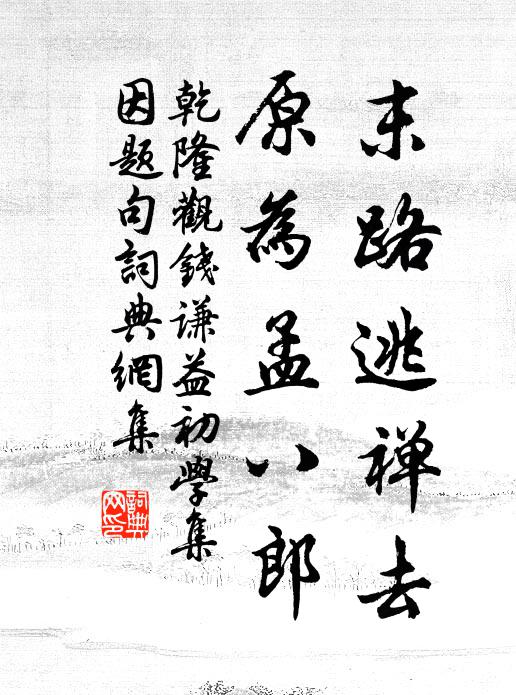 末路逃禅去
原為孟八郎
乾隆觀錢谦益初學集
因题句詞典網集
詞典
网印